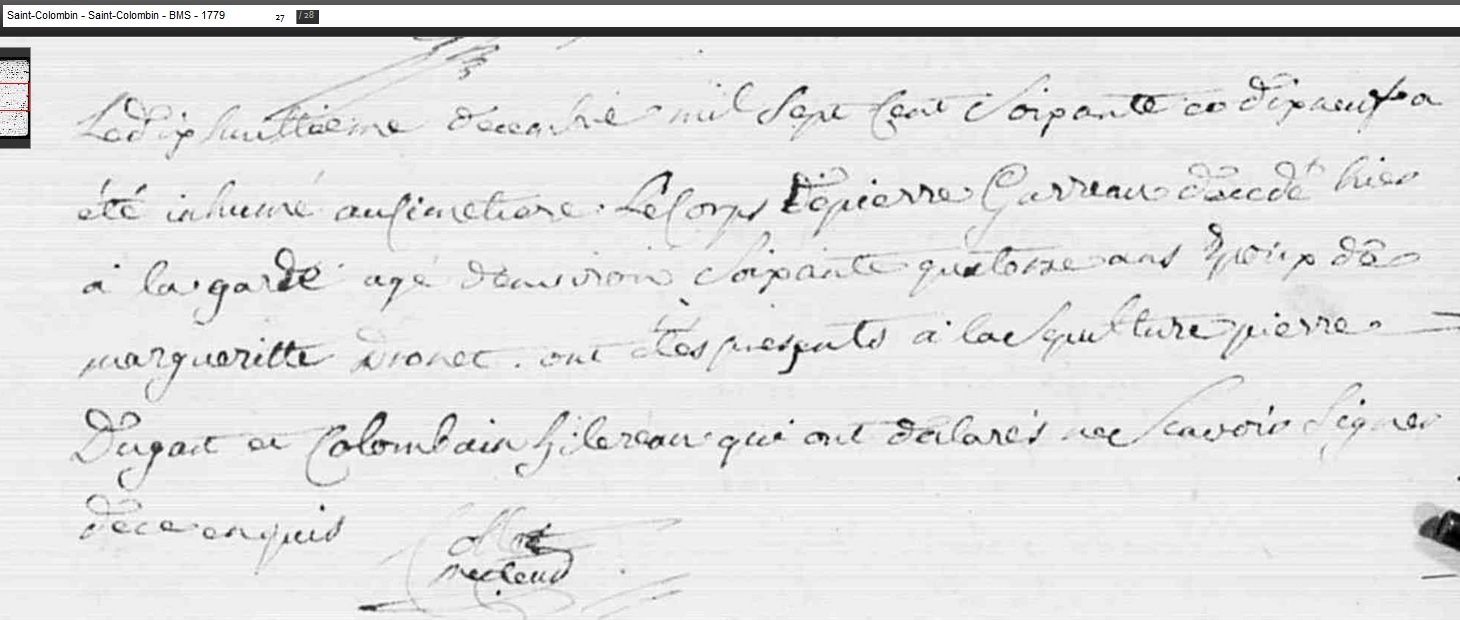 Saint-Colombin - Saint-Colombin - BMS - 1779 27 / 28
Le dix huittieme decembre mil sept cent soixante et dixneuf a
été inhumé au cimetiere le corps de pierre Garreau décédé hier
a la garde agé d'environ soixante quatorze ans Epoux de
margueritte Dronet . ont étés presents a la sepulture pierre
Dugast et Colombain Gilereau qui ont déclarés ne savoir signer
de ce enquis